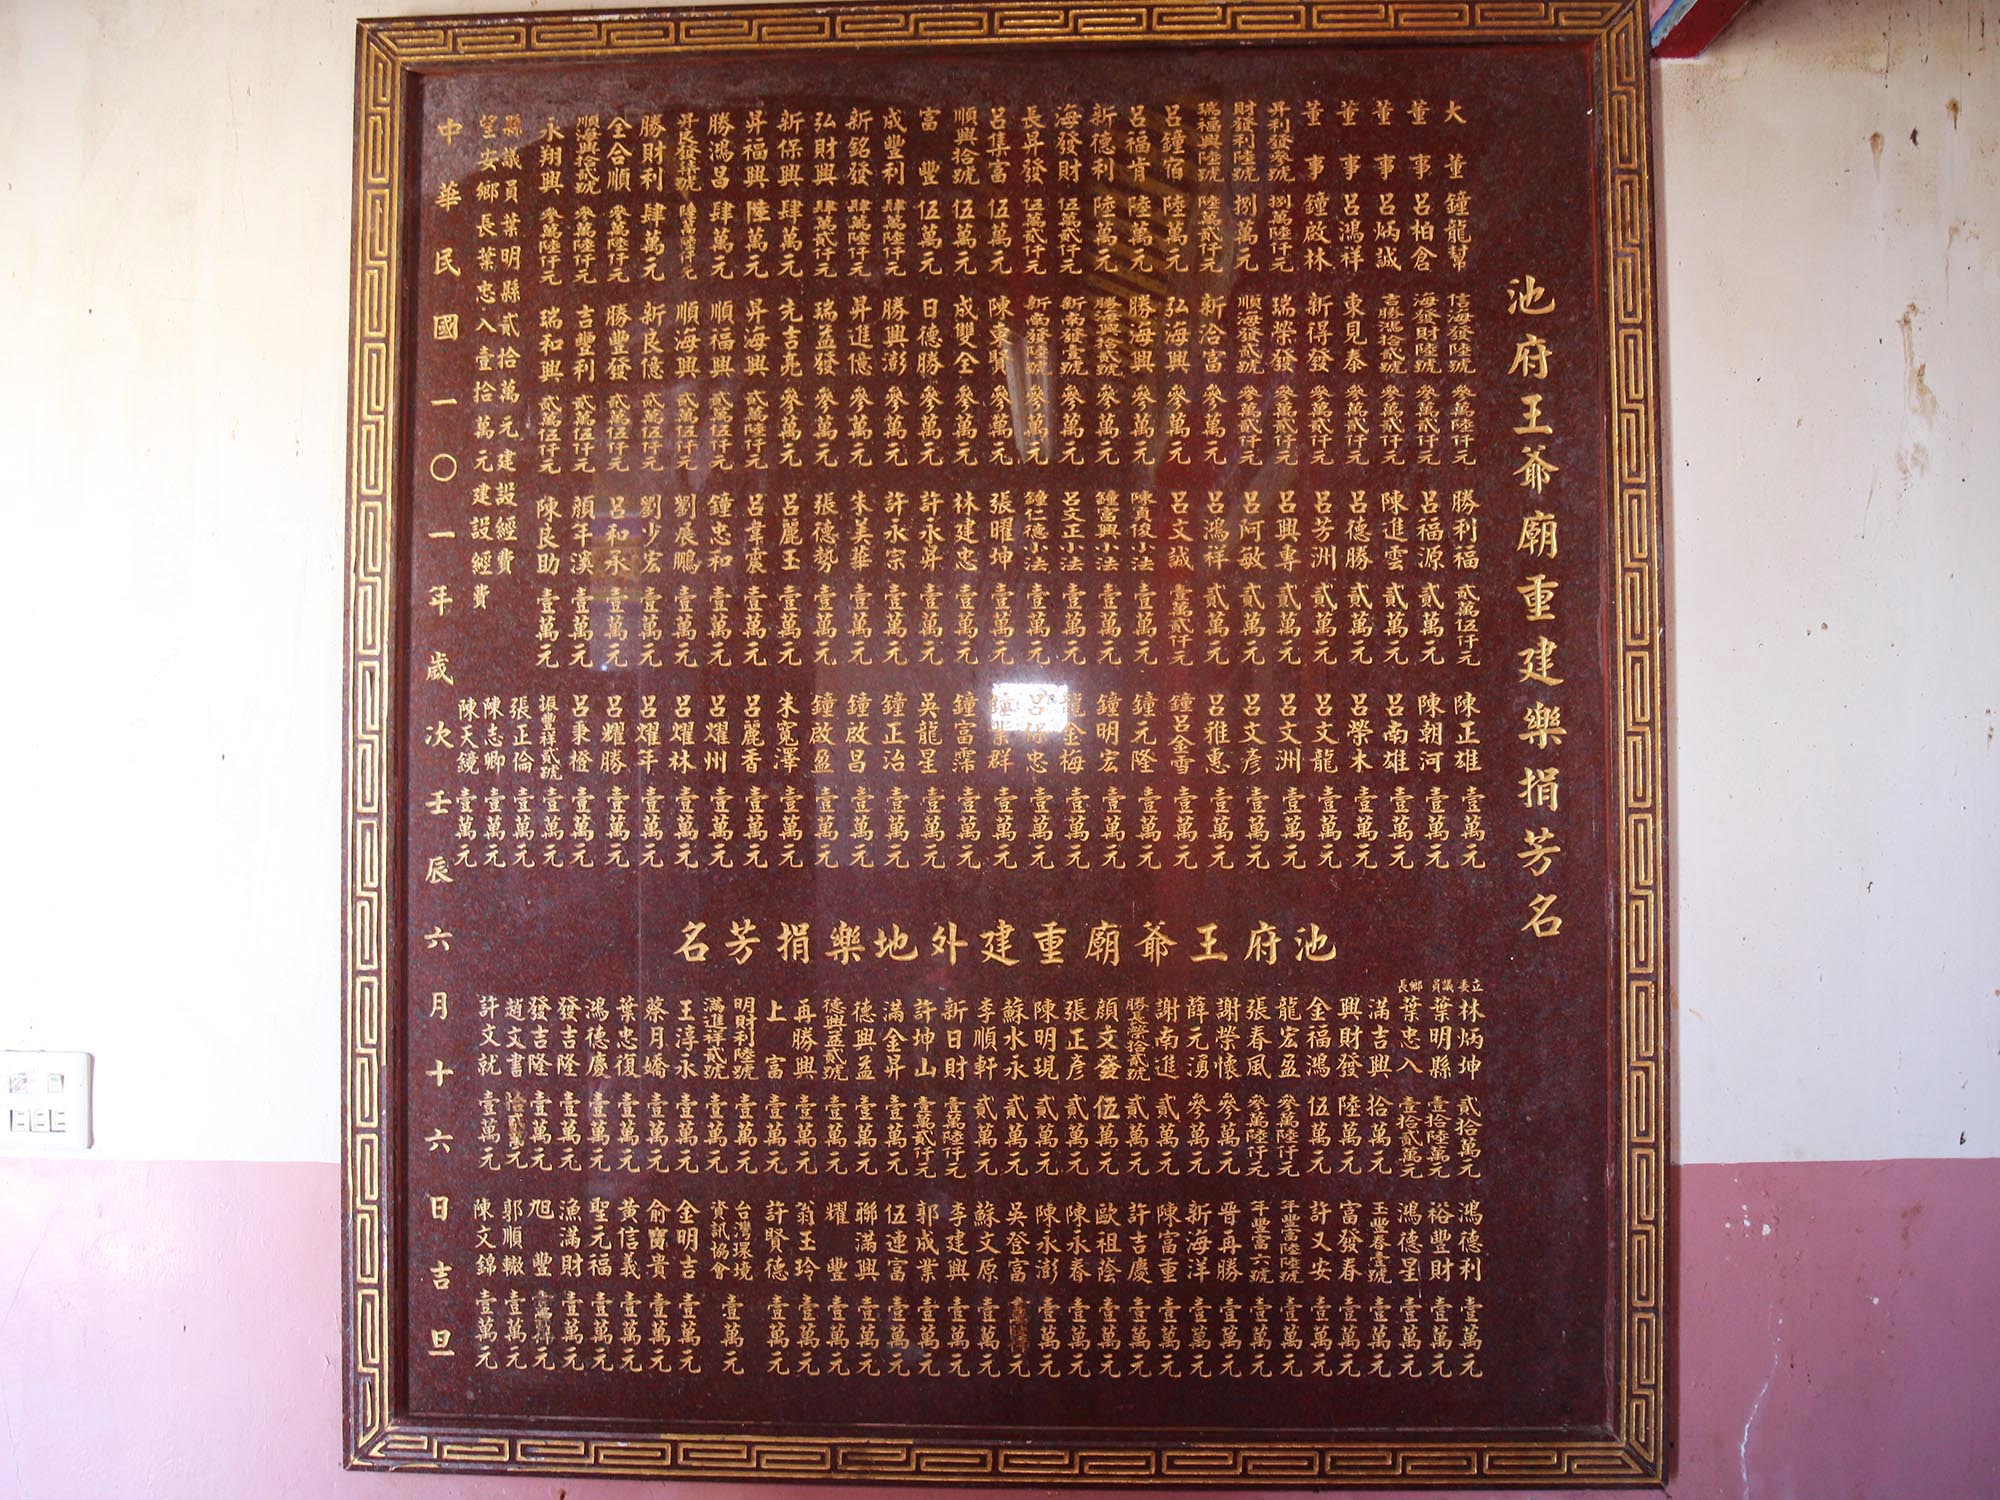 池府王爺廟重建樂捐芳名
大董鐘龍幫
董事呂柏倉
董事呂炳誠
董事呂鴻祥
董事鐘啟林
昇利發參號 捌萬陸仟元
財發利陸號 捌萬元
瑞福興陸號 陸萬貳仟元
呂鐘宿 陸萬元
呂福肯 陸萬元
新德利 陸萬元
海發財 伍萬貳仟元
長昇發 伍萬貳仟元
呂集富 伍萬元
順興拾號 伍萬元
富豐 伍萬元
成豐利 肆萬陸仟元
新銘發 肆萬陸仟元
弘財興 肆萬貳仟元
新保興 肆萬元
昇福興 陸萬元
勝鴻昌 肆萬元
勝財利 肆萬元
全合順 參萬陸仟元
順海興拾貳號 參萬陸仟元
永翔興 參萬陸仟元
信海發陸號 參萬陸仟元
海發財陸號 參萬貳仟元
吉勝鴻拾貳號 參萬貳仟元
東見泰 參萬貳仟元
新得發 參萬貳仟元
瑞榮發 參萬貳仟元
順海發貳號 參萬貳仟元
新洽富 參萬元
弘海興 參萬元
勝海興 參萬元
勝海興拾貳號 參萬元
新南發壹號 參萬元
新南發陸號 參萬元
陳東賢 參萬元
成雙全 參萬元
日德勝 參萬元
勝興澎 參萬元
昇進億 參萬元
瑞益發 參萬元
先吉亮 參萬元
昇海興 貳萬陸仟元
順福興 貳萬伍仟元
順海興 貳萬伍仟元
新良億 貳萬伍仟元
勝豐發 貳萬伍仟元
吉豐利 貳萬伍仟元
瑞和興 貳萬伍仟元
勝利福 貳萬伍仟元
呂福源 貳萬元
陳進雲 貳萬元
呂德勝 貳萬元
呂芳洲 貳萬元
呂興專 貳萬元
呂阿敏 貳萬元
呂鴻祥 貳萬元
呂文誠 壹萬貳仟元
陳貞俊小法 壹萬元
鐘富興小法 壹萬元
呂文正小法 壹萬元
鐘仁德小法 壹萬元
張曜坤 壹萬元
林建忠 壹萬元
許永昇 壹萬元
許永宗 壹萬元
朱美華 壹萬元
張德勢 壹萬元
呂麗玉 壹萬元
呂韋震 壹萬元
鐘忠和 壹萬元
劉展鵬 壹萬元
劉少宏 壹萬元
呂和永 壹萬元
顏年溪 壹萬元
陳良助 壹萬元
陳正雄 壹萬元
陳朝河 壹萬元
呂南雄 壹萬元
呂榮木 壹萬元
呂文龍 壹萬元
呂文洲 壹萬元
呂文彥 壹萬元
呂雅惠 壹萬元
鐘呂金雪 壹萬元
鐘元隆 壹萬元
鐘明宏 壹萬元
龍金梅 壹萬元
呂得忠 壹萬元
鐘業群 壹萬元
鐘富霈 壹萬元
吳龍星 壹萬元
鐘正冶 壹萬元
鐘啟昌 壹萬元
鐘啟盈 壹萬元
朱寬澤 壹萬元
呂麗香 壹萬元
呂燿州 壹萬元
呂燿林 壹萬元
呂燿年 壹萬元
呂燿勝 壹萬元
呂秉橙 壹萬元
振豐祥貳號 壹萬元
張正倫 壹萬元
陳志卿 壹萬元
陳天鏡 壹萬元
縣議員葉明縣貳拾萬元建設經費
望安鄉長葉忠入壹拾萬元建設經費
池府王爺廟重建外地樂捐芳名
立委 林炳坤 貳拾萬元
議員 葉明縣 壹拾陸萬元
鄉長 葉忠入 壹拾貳萬元
滿吉興 拾萬元
興財發 陸萬元
金福鴻 伍萬元
龍宏盈 參萬陸仟元
張春風 參萬陸仟元
謝榮懷 參萬元
薛元湧 參萬元
謝南進 貳萬元
勝長榮拾貳號 貳萬元
顏文發 伍萬元
張正彥 貳萬元
陳明現 貳萬元
蘇水永 貳萬元
李順軒 貳萬元
新日財 壹萬陸仟元
許坤山 壹萬貳仟元
滿金昇 壹萬元
德興益 壹萬元
德興益貳號 壹萬元
再勝興 壹萬元
上富 壹萬元
明財利陸號 壹萬元
滿進祥貳號 壹萬元
王淳永 壹萬元
蔡月嬌 壹萬元
葉忠復 壹萬元
鴻德慶 壹萬元
發吉隆 壹萬元
發吉隆 壹萬元
趙文書
許文就 壹萬元
鴻德利 壹萬元
裕豐財 壹萬元
鴻德星 壹萬元
玉豐春壹號 壹萬元
富發春 壹萬元
許又安 壹萬元
年豐富陸陸號 壹萬元
年豐富六號 壹萬元
晉再勝 壹萬元
新海洋 壹萬元
陳富重 壹萬元
許吉慶 壹萬元
歐祖蔭 壹萬元
陳永春 壹萬元
陳永澎 壹萬元
吳登富
蘇文原 壹萬元
李建興 壹萬元
郭成業 壹萬元
伍連富 壹萬元
聯滿興 壹萬元
耀豐 壹萬元
翁玉玲 壹萬元
許賢德 壹萬元
台灣環境資訊協會 壹萬元
金明吉 壹萬元
俞寶貴 壹萬元
黃信義 壹萬元
聖元福 壹萬元
漁滿財 壹萬元
旭豐
郭順撤 壹萬元
陳文錦 壹萬元
中華民國一〇一年歲次壬辰六月十六日吉旦